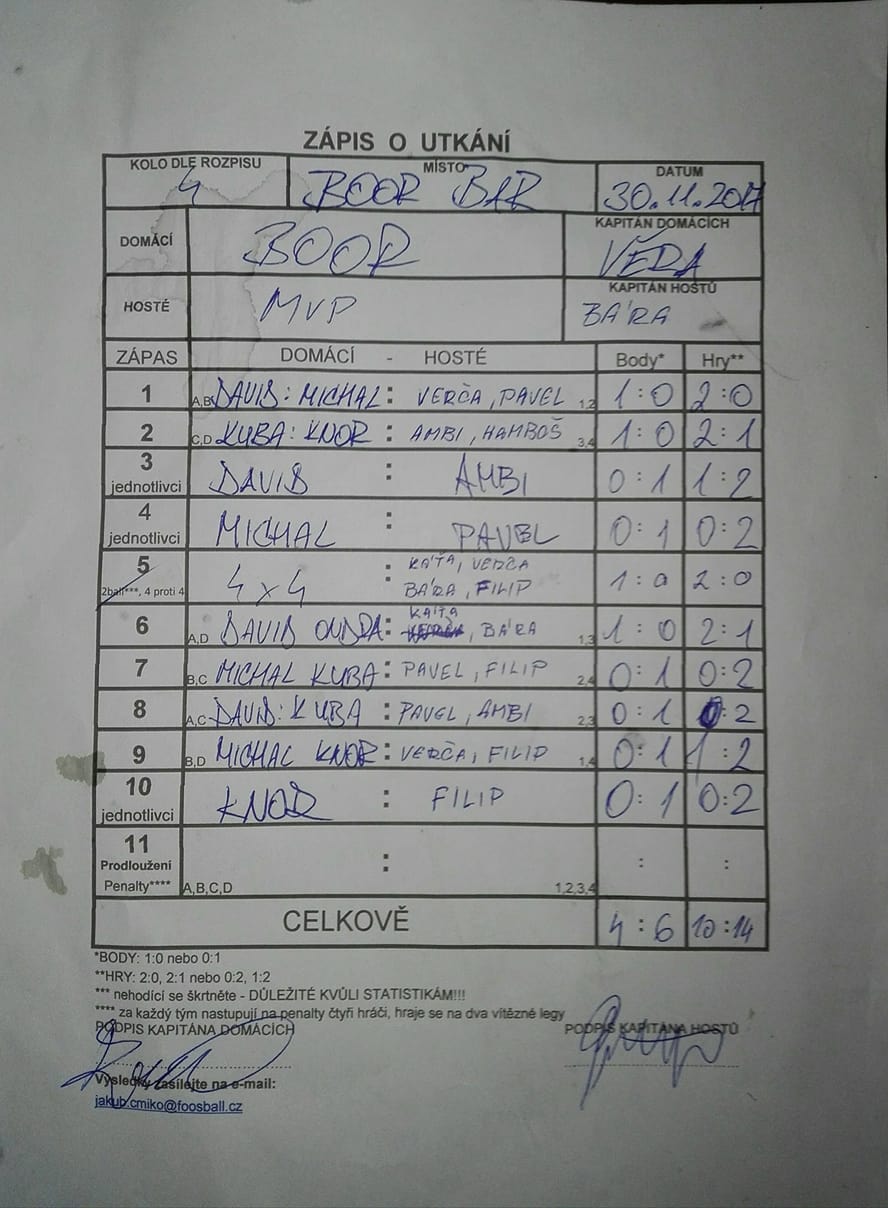 ZÁPIS O UTKÁNÍ
KOLO DLE ROZPISU MÍSTO DATUM
4 BOOR BAR 30.11.2017
DOMÁCÍ BOOR KAPITÁN DOMÁCÍCH
VĚRA
HOSTÉ MVP KAPITÁN HOSTŮ
BÁRA
ZÁPAS DOMÁCÍ - HOSTÉ Body* Hry**
1 A,B DAVID : MICHAL : VERČA, PAVEL 1,2 1:0 2:0
2 C,D KUBA : KNOR : AMBI, HAMBOŠ 3,4 1:0 2:1
3 jednotlivci DAVID : AMBI 0:1 1:2
4 jednotlivci MICHAL : PAVEL 0:1 0:2
5 4 x 4 : KÁŤA, VERČA
2ball***, 4 proti 4 BÁRA, FILIP 1:0 2:0
KÁŤA
6 A,D DAVID ONDRA : BÁRA 1,3 1:0 2:1
7 B,C MICHAL KUBA : PAVEL, FILIP 2,4 0:1 0:2
8 A,C DAVID : KUBA : PAVEL, AMBI 2,3 0:1 0:2
9 B,D MICHAL KNOR : VERČA, FILIP 1,4 0:1 1:2
10 jednotlivci KNOR : FILIP 0:1 0:2
11
Prodloužení : : :
Penalty**** A,B,C,D 1,2,3,4
CELKOVĚ 4:6 10:14
*BODY: 1:0 nebo 0:1
**HRY: 2:0, 2:1 nebo 0:2, 1:2
*** nehodící se škrtněte - DŮLEŽITÉ KVŮLI STATISTIKÁM!!!
**** za každý tým nastupují na penalty čtyři hráči, hraje se na dva vítězné legy
PODPIS KAPITÁNA DOMÁCÍCH PODPIS KAPITÁNA HOSTŮ
Výsledky zasílejte na e-mail:
jakub.cmiko@foosball.cz